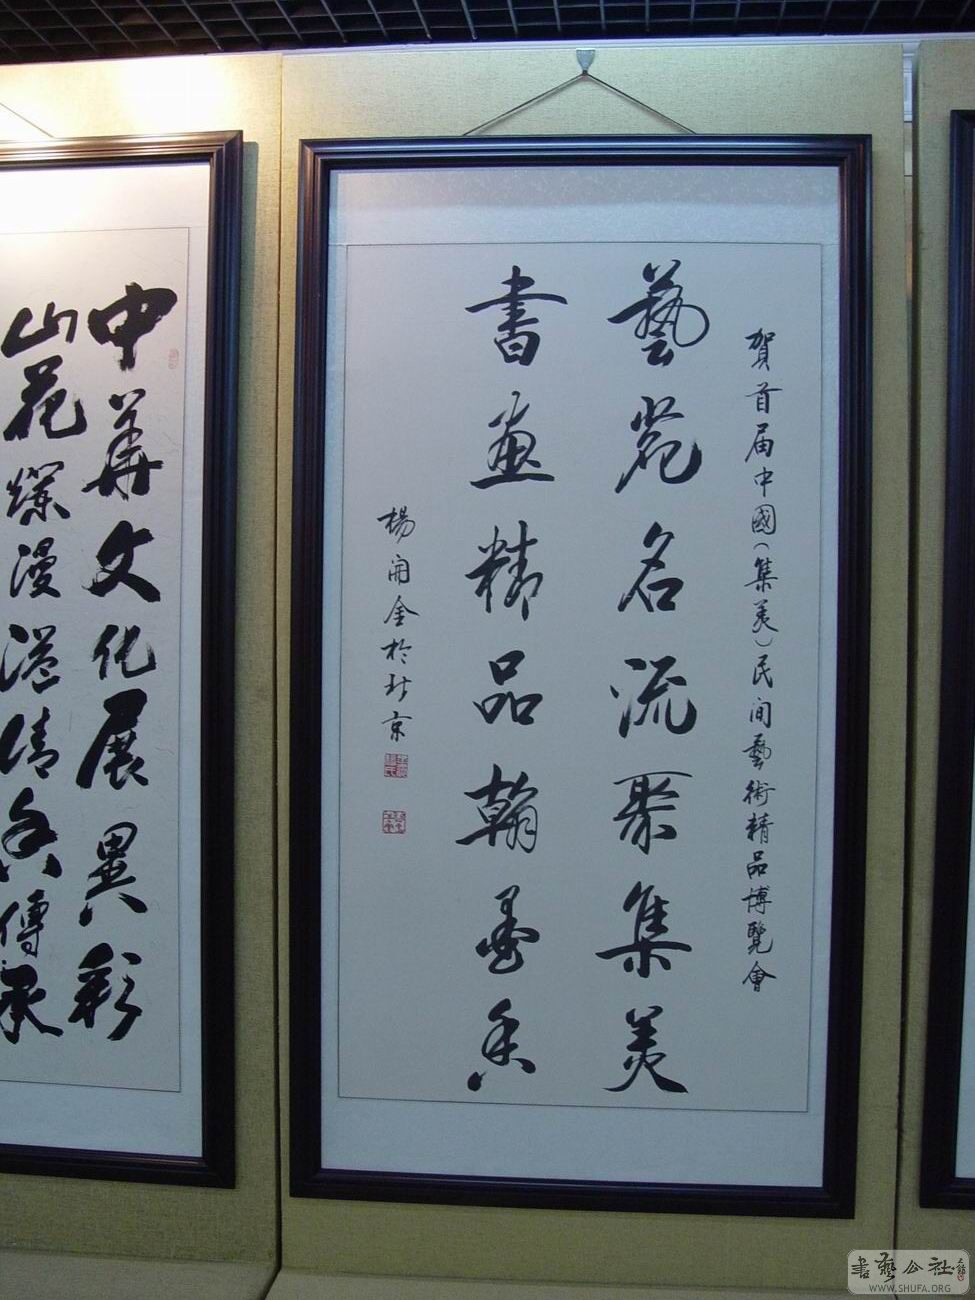 賀首届中國(集美)民间藝術精品博覽會
藝苑名流聚集美
書畫精品翰墨香
楊開金於北京
中華文化展異彩
山花爛漫溢清香傳承
書藝公社
WWW.SHUFA.ORG